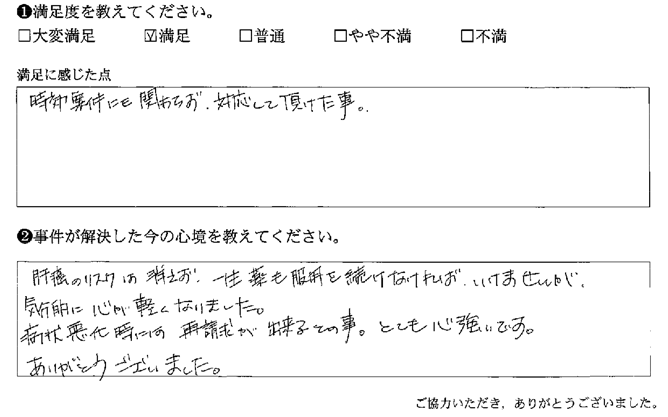 ❶満足度を教えてください。
□大変満足 ☑満足 □普通 □やや不満 □不満
満足に感じた点
時効案件にも関わらず、対応して頂けた事。
❷事件が解決した今の心境を教えてください。
肝癌のリスクは消えず、一生薬も服用を続けなければ、いけませんが、
気分的に心が軽くなりました。
病状悪化時には再請求が出来るとの事。とても心強いです。
ありがとうございました。
ご協力いただき、ありがとうございました。